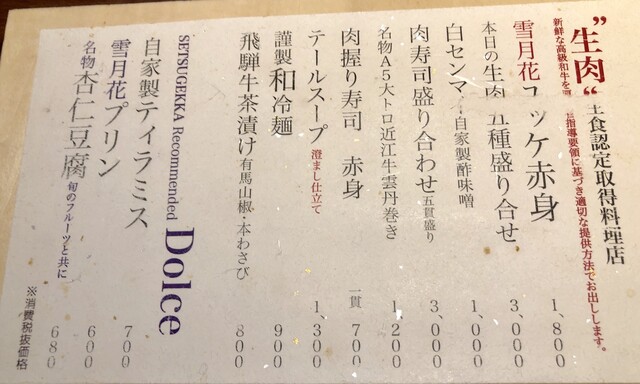 ”生肉“ 生食認定取得料理店
新鮮な高級和牛を 生指導要領に基づき適切な提供方法でお出しします。
雪月花ユッケ赤身 1,800
本日の生肉 五種盛り合せ 3,000
白センマイ 自家製酢味噌 1,000
肉寿司盛り合わせ 五貫盛り 3,000
名物A5大トロ近江牛雲丹巻き 1,200
肉握り寿司 赤身 一貫 700
テールスープ 澄まし仕立て 1,300
謹製 和冷麺 900
飛騨牛茶漬け 有馬山椒・本わさび 800
SETSUGEKKA Recommended Dolce
自家製ティラミス 700
雪月花プリン 600
名物 杏仁豆腐 旬のフルーツと共に 680
※消費税抜価格